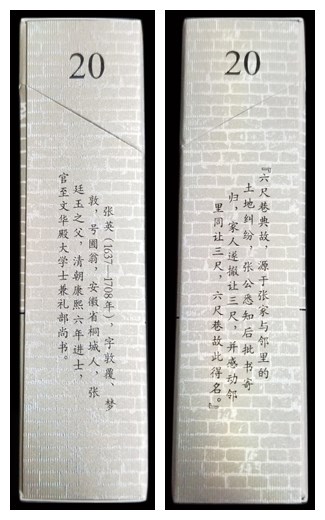 20
张英（1637—1708年），字敦覆、梦
敦，号圃翁，安徽省桐城人，张
廷玉之父，清朝康熙六年进士，
官至文华殿大学士兼礼部尚书。
20
『六尺巷典故，源于张家与邻里的
土地纠纷，张公悉知后批书寄
归，家人遂撤让三尺，并感动邻
里同让三尺，六尺巷故此得名。』